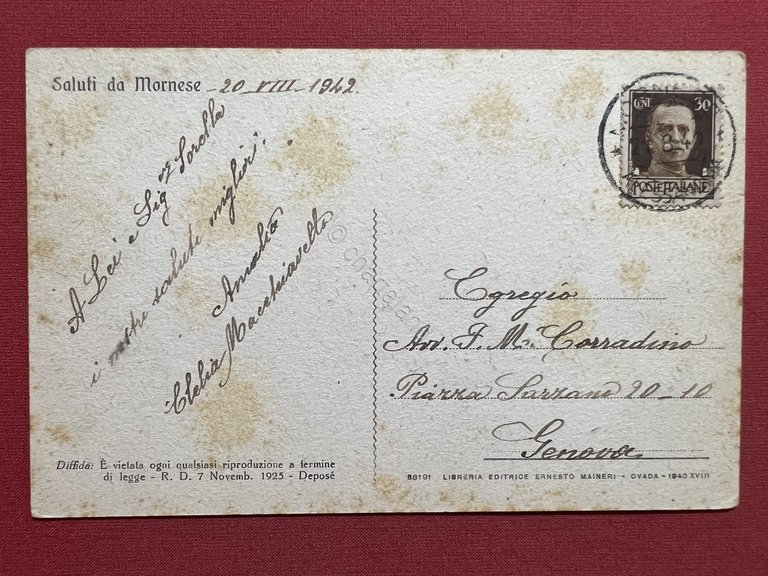 Saluti da Mornese - 20 VIII - 1942
A Lei e Sig.na Sorella
i nostri saluti migliori.
Amalia
Clelia Macchiavello
CENT. 30
POSTE ITALIANE
Egregio
Avv. F. M. Corradino
Piazza Sarzano 20-10
Genova
Diffida: È vietata ogni qualsiasi riproduzione a termine
di legge - R. D. 7 Novemb. 1925 - Deposé
68191 LIBRERIA EDITRICE ERNESTO MAINERI - OVADA - 1940 XVIII